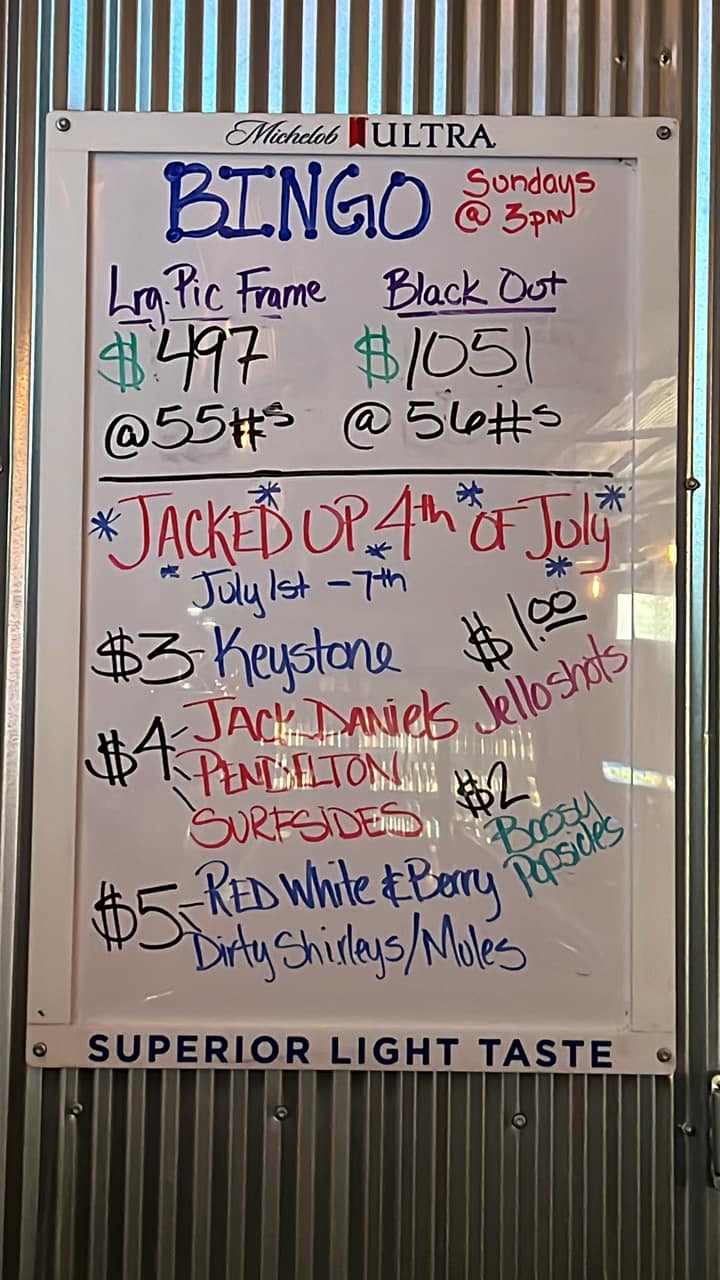 Michelob ULTRA
BINGO Sundays
@ 3PM
Lrg. Pic Frame
$497
@55#s
Black Out
$1051
@56#s
JACKED UP 4th OF July
July 1st - 7th
$3- Keystone
$1.00
Jello shots
$4- JACK DANiels
- PENDELTON
- SURFSiDES
$2
Boosy
Popsicles
$5- RED White & Berry
- Dirty Shirleys/Mules
SUPERIOR LIGHT TASTE